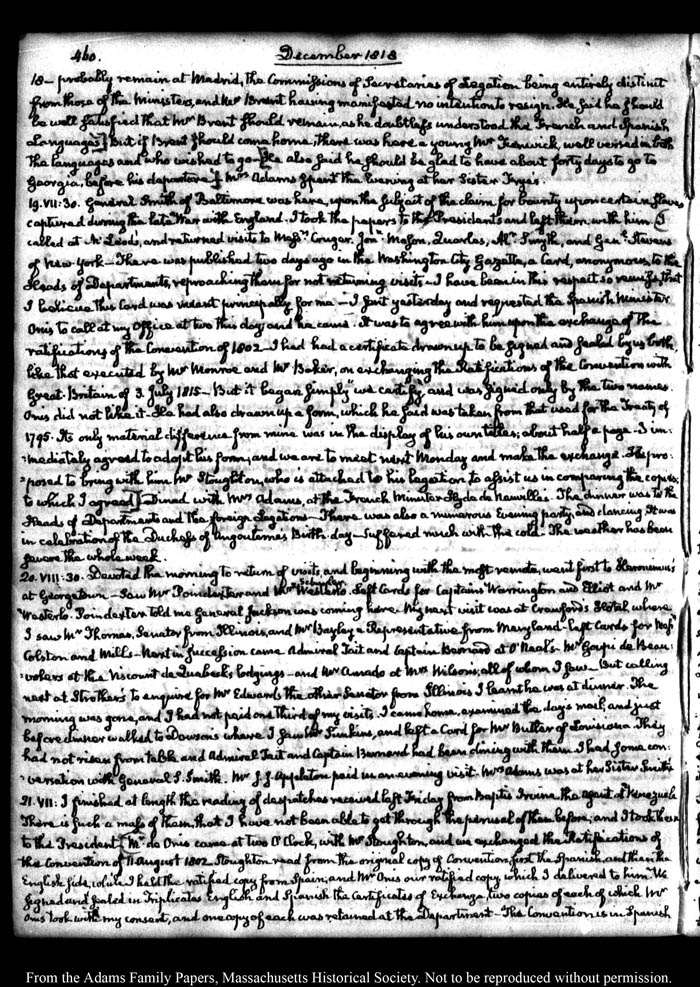 460.
December 1818
18— probably remain at Madrid, the Commissions of Secretaries of Legation being entirely distinct
from those of the Ministers, and Mr Brent having manifested no intention to resign. He said he should
be well satisfied that Mr Brent should remain, as he doubtless understood the French and Spanish
Languages] but if Brent should come home, there was here a young Mr Fenwick, well versed in both
the languages and who wished to go— He also said he should be glad to have about forty days to go to
Georgia, before his departure] Mrs Adams spent the Evening at her Sister Frye's.
19. VII:30. General Smith of Baltimore was here, upon the subject of the claim for bounty upon certain slaves
captured during the late War with England. I took the papers to the Presidents and left them with him. [I
called at Mr Leod's, and returned visits to Messrs Cruger, Jona Mason, Quarles, Alr Smyth, and Genl Stevens
of New-York— There was published two days ago in the Washington City Gazette, a Card, anonymous, to the
Heads of Departments, reproaching them for not returning visits— I have been in this respect so remiss, that
I believe this Card was meant principally for me— I sent yesterday and requested the Spanish Minister
Onis to call at my Office at two this day, and he came. It was to agree with him upon the exchange of the
ratifications of the Convention of 1802— I had had a certificate drawn up to be signed and sealed by us both,
like that executed by Mr Monroe and Mr Baker, on exchanging the Ratifications of the Convention with
Great-Britain of 3. July 1815— But it began simply "we certify" and was signed only by the two names.
Onis did not like it— He had also drawn up a form, which he said was taken from that used for the Treaty of
1795. Its only material difference from mine was in the display of his own titles; about half a page. I im-
mediately agreed to adopt his form, and we are to meet next Monday and make the exchange. He pro-
posed to bring with him Mr Stoughton, who is attached to his Legation to assist us in comparing the copies;
to which I agreed] Dined with Mrs Adams, at the French Minister Hyde de Neuville's. The dinner was to the
Heads of Departments and the foreign Legations— There was also a numerous Evening party, and dancing. It was
in celebration of the Duchess of Angouleme's Birth-day— Suffered much with the cold. The weather has been
severe the whole week.
20. VIII:30. Devoted the morning to return of visits, and beginning with the most remote, went first to Hieronimus's
at Georgetown— Saw Mr Poindexter and Mr Schuyler Westerlo. Left Cards for Captains Warrington and Elliot and Mr
Westerlo. Poindexter told me General Jackson was coming here. My next visit was at Crawford's Hotel, where
I saw Mr Thomas, Senator from Illinois, and Mr Bayley a Representative from Maryland— Left Cards for Messrs
Colston and Mills— Next in succession came Admiral Tait and Captain Barnard at O'Neal's. Mr Goupi de Beau-
volers at the Viscount de Quabeck's lodgings— and Mr Amado at Mrs Wilson's; all of whom I saw— But calling
next at Strother's to enquire for Mr Edwards the other Senator from Illinois I learnt he was at dinner. The
morning was gone, and I had not paid one third of my visits. I came home, examined the day's mail, and just
before dinner walked to Dowson's where I saw Mr Simkins, and left a Card for Mr Butler of Louisiana. They
had not risen from table and Admiral Tait and Captain Barnard had been dining with them. I had some con-
versation with General S. Smith. Mr J. J. Appleton paid in an evening visit. Mrs Adams was at her Sister Smith's.
21. VII: I finished at length the reading of despatches received last Friday from Baptis Irvine the agent at Venezuela.
There is such a mass of them, that I have not been able to get through the perusal of them before; and I took them
to the President [Mr de Onis came at two O'Clock, with Mr Stoughton, and we exchanged the Ratifications of
the Convention of 11 August 1802. Stoughton read from the original copy of Convention, first the Spanish, and then the
English side, while I held the ratified copy from Spain, and Mr Onis our ratified copy, which I delivered to him. We
signed and sealed in Triplicates English and Spanish the Certificates of Exchange, two copies of each of which Mr
Onis took with my consent, and one copy of each was retained at the Department— The Convention is in Spanish
From the Adams Family Papers, Massachusetts Historical Society. Not to be reproduced without permission.